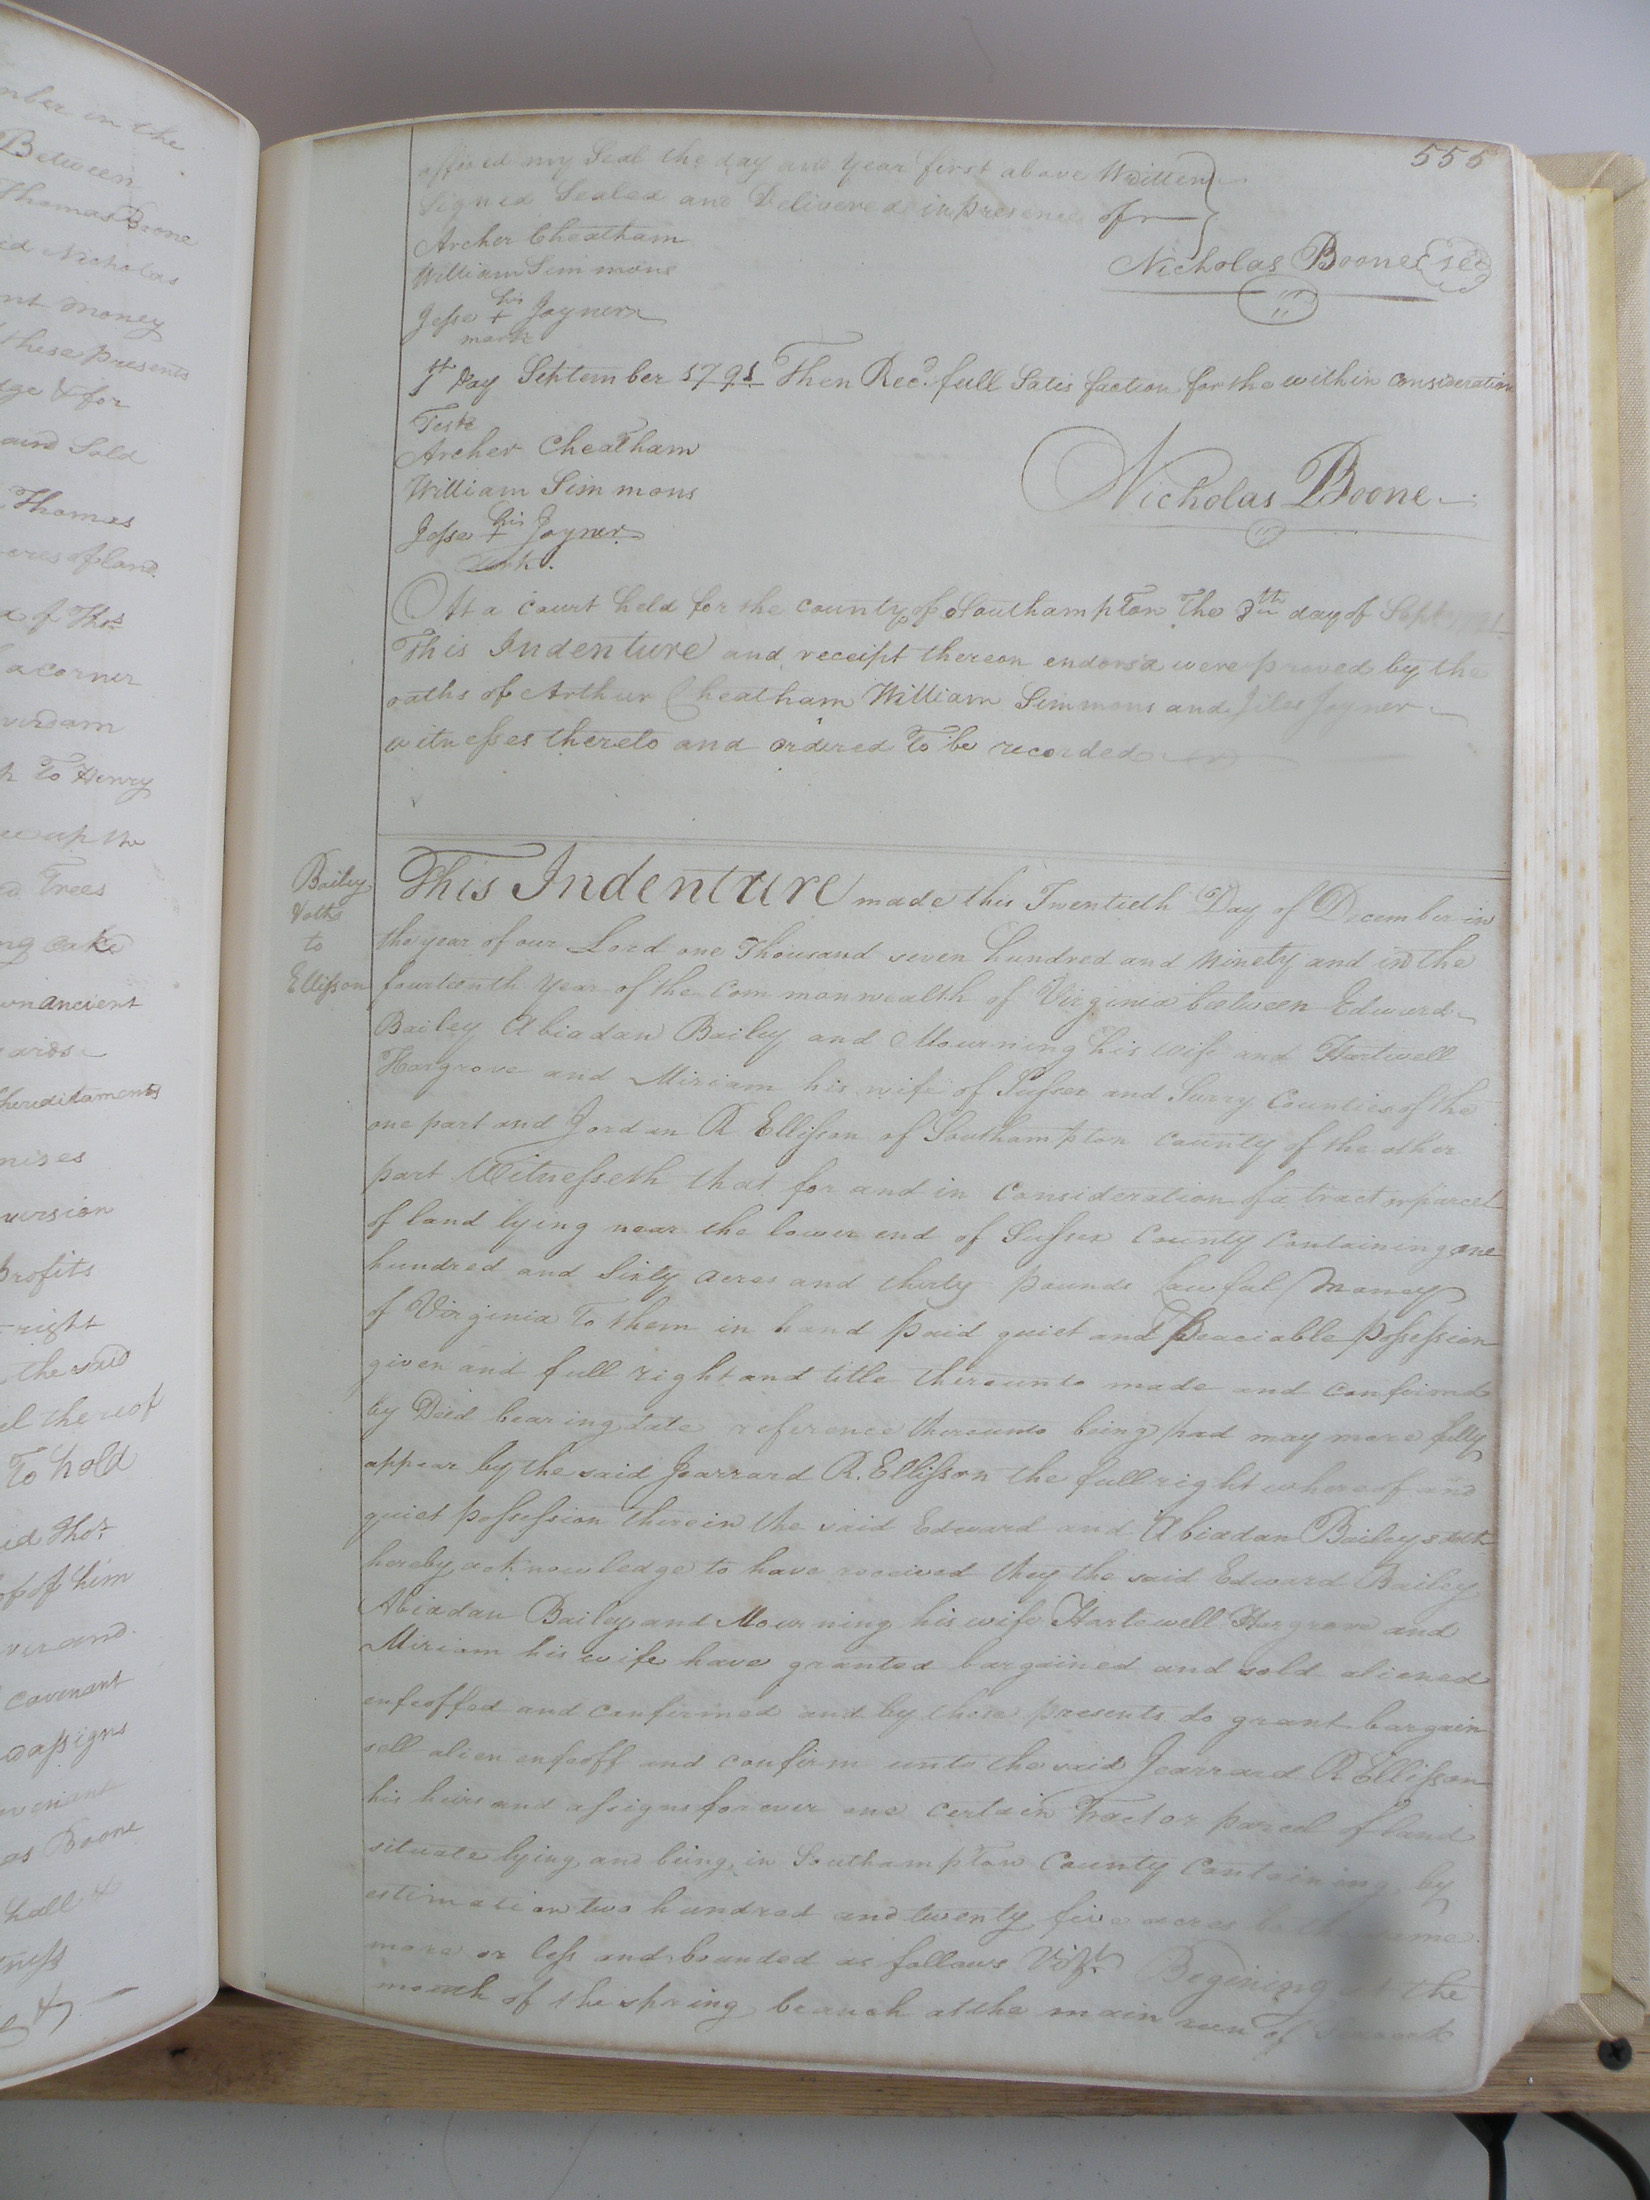 mber in the
Between
Thomas Boone
id Nicholas
nt money
these presents
ge & for
and Sold
Thomas
cres of land
x of Thos
a corner
To Henry
up the
Trees
ng oake
wn ancient
hereditaments
mises
version
Profits
right
the said
To hold
id Thos
of him
ver and
Covenant
assigns
as Boone
hall &
555
affixed my Seal the day and year first above Written
Signed Sealed and Delivered in presence of
Archer Cheatham
Nicholas Boone Seal
William Simmons
his
Jesse + Joyner
mark
1st Day September 1791 Then Recd. full Satisfaction for the within Consideration
Teste
Archer Cheatham
William Simmons
Nicholas Boone
his
Jesse + Joyner
mark.
At a Court held for the county of Southampton The 8th day of Sept 1791
This Indenture and receipt thereon endorsd were proved by the
oaths of Arthur Cheatham William Simmons and Jiles Joyner
witnesses thereto and ordered To be recorded
Bailey
& oths
to
Ellisson
This Indenture made this Twentieth Day of December in
the year of our Lord one Thousand seven hundred and Ninety and in the
fourteenth Year of the Commonwealth of Virginia between Edward
Bailey Abiadan Bailey and Mourning his wife and Hartwell
Hargrove and Miriam his wife of Sussex and Surry Counties of the
one part and Jordan R Ellisson of Southampton County of the other
part Witnesseth that for and in Consideration of a tract or parcel
of land lying near the lower end of Sussex County Containing one
hundred and Sixty acres and thirty pounds Lawful Money
of Virginia To them in hand paid quiet and Peaciable Possession
given and full right and title thereunto made and confirmd
by Deed bearing date reference thereunto being had may more fully
appear by the said Jearrard R. Ellisson the full right whereof and
quiet possession therein the said Edward and Abiadan Baileys doth
hereby acknowledge to have received they the said Edward Bailey
Abiadan Bailey and Mourning his wife Hartewell Hargrove and
Miriam his wife have granted bargained and sold aliened
enfeoffed and confirmed and by these presents do grant bargain
sell alien enfeoff and confirm unto the said Jearrard R Ellisson
his heirs and assigns forever one Certain Tract or parcel of land
situate lying and being in Southampton County Containing by
estimation two hundred and twenty five acres be the same
more or less and bounded as follows Vizt. Begining at the
mouth of the spring branch at the main run of